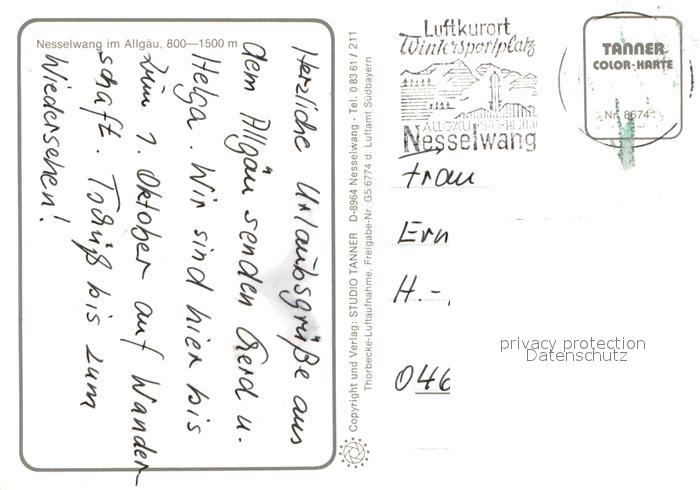 Nesselwang im Allgäu, 800—1500 m
Herzliche Urlaubsgrüße aus
dem Allgäu senden Gerd u.
Helga. Wir sind hier bis
zum 1. Oktober auf Wander-
schaft. Tschüß bis zum
Wiedersehen!
Copyright und Verlag: STUDIO TANNER D-8964 Nesselwang - Tel. 0 83 61 / 211
Thorbecke-Luftaufnahme, Freigabe-Nr. G5/6774 d. Luftamt Südbayern
Luftkurort
Wintersportplatz
ALLGÄU
Nesselwang
TANNER
COLOR-KARTE
Nr. 8674
Frau
Ern
H.-
046
privacy protection
Datenschutz